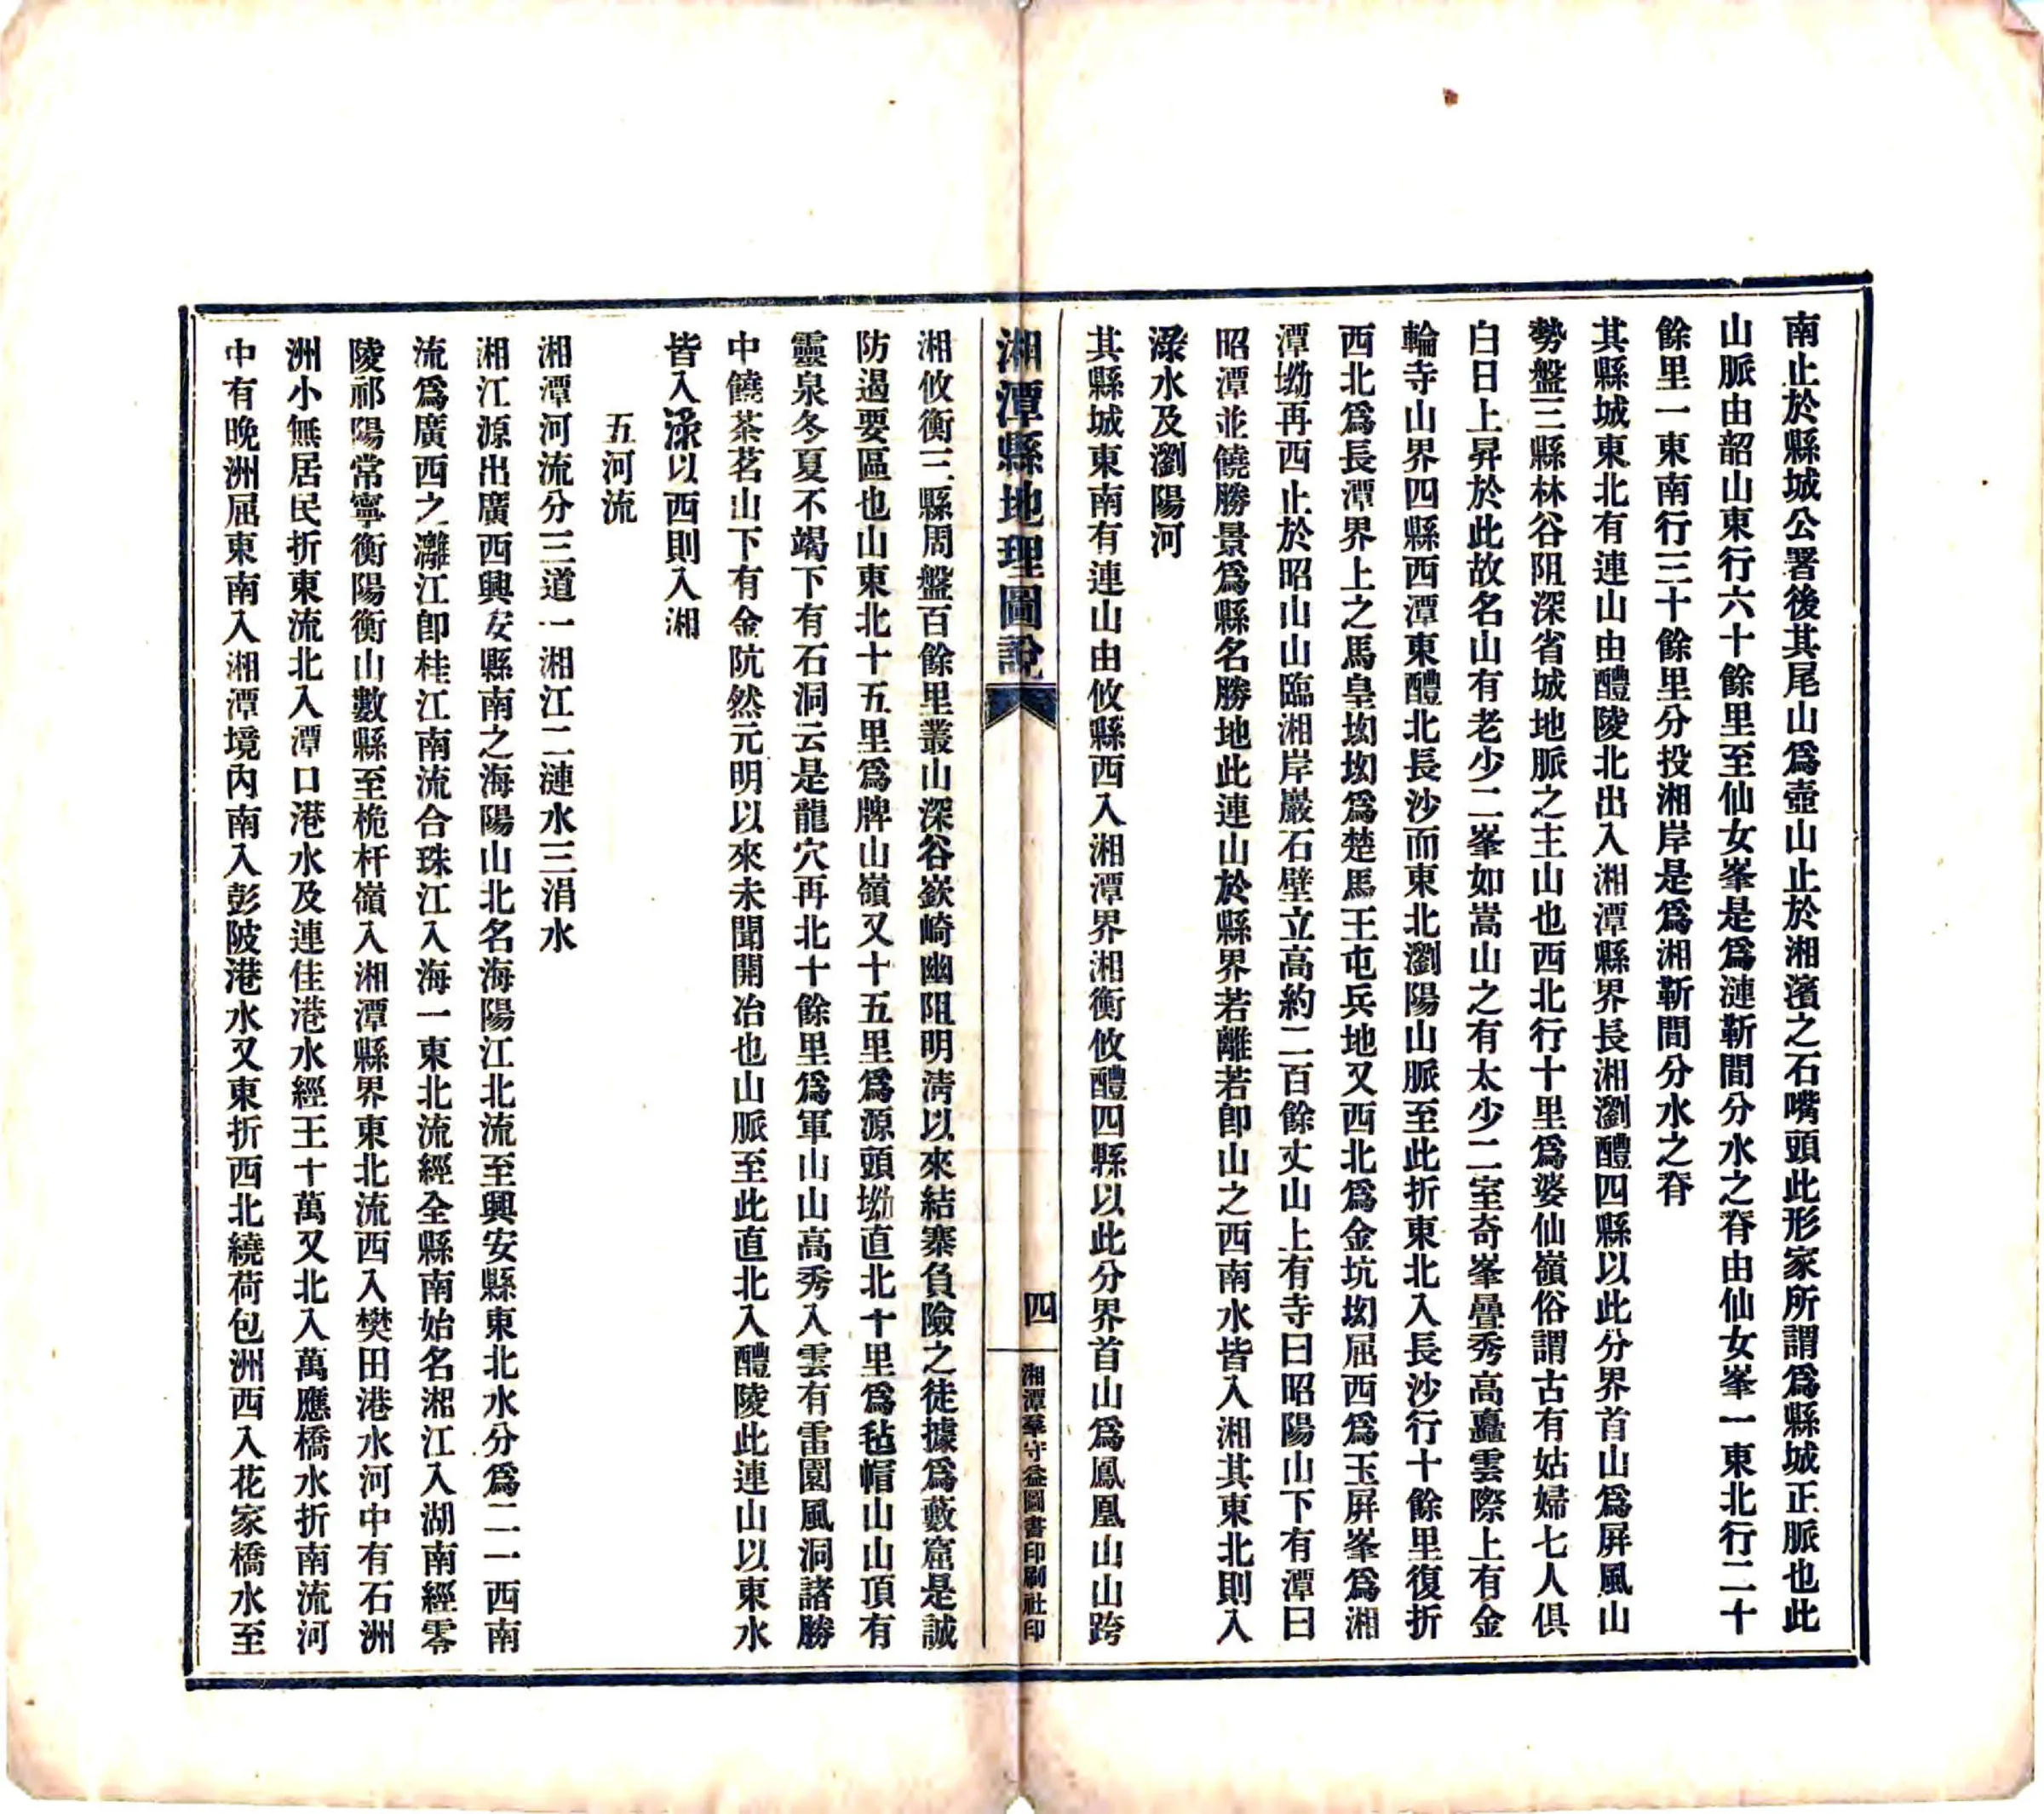 南止於縣城公署後其尾山爲壺山止於湘濱之石嘴頭此形家所謂爲縣城正脈也此
山脈由韶山東行六十餘里至仙女峯是爲漣靳間分水之脊由仙女峯一東北行二十
餘里一東南行三十餘里分投湘岸是爲湘靳間分水之脊
其縣城東北有連山由醴陵北出入湘潭縣界長湘瀏醴四縣以此分界首山爲屏風山
勢盤三縣林谷阻深省城地脈之主山也西北行十里爲婆仙嶺俗謂古有姑婦七人俱
白日上昇於此故名山有老少二峯如嵩山之有太少二室奇峯疊秀高矗雲際上有金
輪寺山界四縣西潭東醴北長沙而東北瀏陽山脈至此折東北入長沙行十餘里復折
西北爲長潭界上之馬皇坳坳爲楚馬王屯兵地又西北爲金坑坳屈西爲玉屏峯爲湘
潭㘭再西止於昭山山臨湘岸巖石壁立高約二百餘丈山上有寺曰昭陽山下有潭曰
昭潭並饒勝景爲縣名勝地此連山於縣界若離若卽山之西南水皆入湘其東北則入
淥水及瀏陽河
其縣城東南有連山由攸縣西入湘潭界湘衡攸醴四縣以此分界首山爲鳳凰山山跨
湘潭縣地理圖說
四
湘潭羣守益圖書印刷社印
湘攸衡三縣周盤百餘里叢山深谷嶔崎幽阻明清以來結寨負險之徒據爲藪窟是誠
防遏要區也山東北十五里爲牌山嶺又十五里爲源頭㘭直北十里爲毡帽山山頂有
靈泉冬夏不竭下有石洞云是龍穴再北十餘里爲軍山山高秀入雲有雷園風洞諸勝
中饒茶茗山下有金阬然元明以來未聞開冶也山脈至此直北入醴陵此連山以東水
皆入淥以西則入湘
五河流
湘潭河流分三道一湘江二漣水三涓水
湘江源出廣西興安縣南之海陽山北名海陽江北流至興安縣東北水分爲二一西南
流爲廣西之灕江卽桂江南流合珠江入海一東北流經全縣南始名湘江入湖南經零
陵祁陽常寧衡陽衡山數縣至桅杆嶺入湘潭縣界東北流西入樊田港水河中有石洲
洲小無居民折東流北入潭口港水及連佳港水經王十萬又北入萬應橋水折南流河
中有晚洲屈東南入湘潭境內南入彭陂港水又東折西北繞荷包洲西入花家橋水至